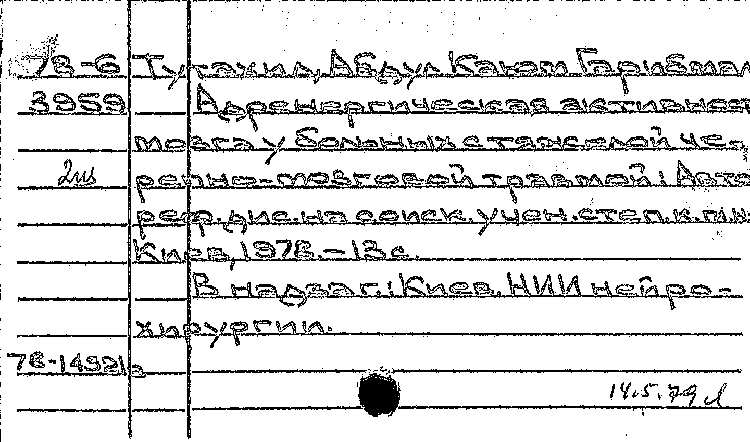 78-6 Тутахил, Абдул Каюм Гарибмал
3959 Адренергическая активност
мозга у больных с тяжелой че-
2 ш репно-мозговой травмой: Авто
реф. дис. на соиск. учен. степ. к.м.н
Киев, 1978. – 13 с.
В надзаг.: Киев. НИИ нейро-
хирургии.
78-14921а
14.5.79